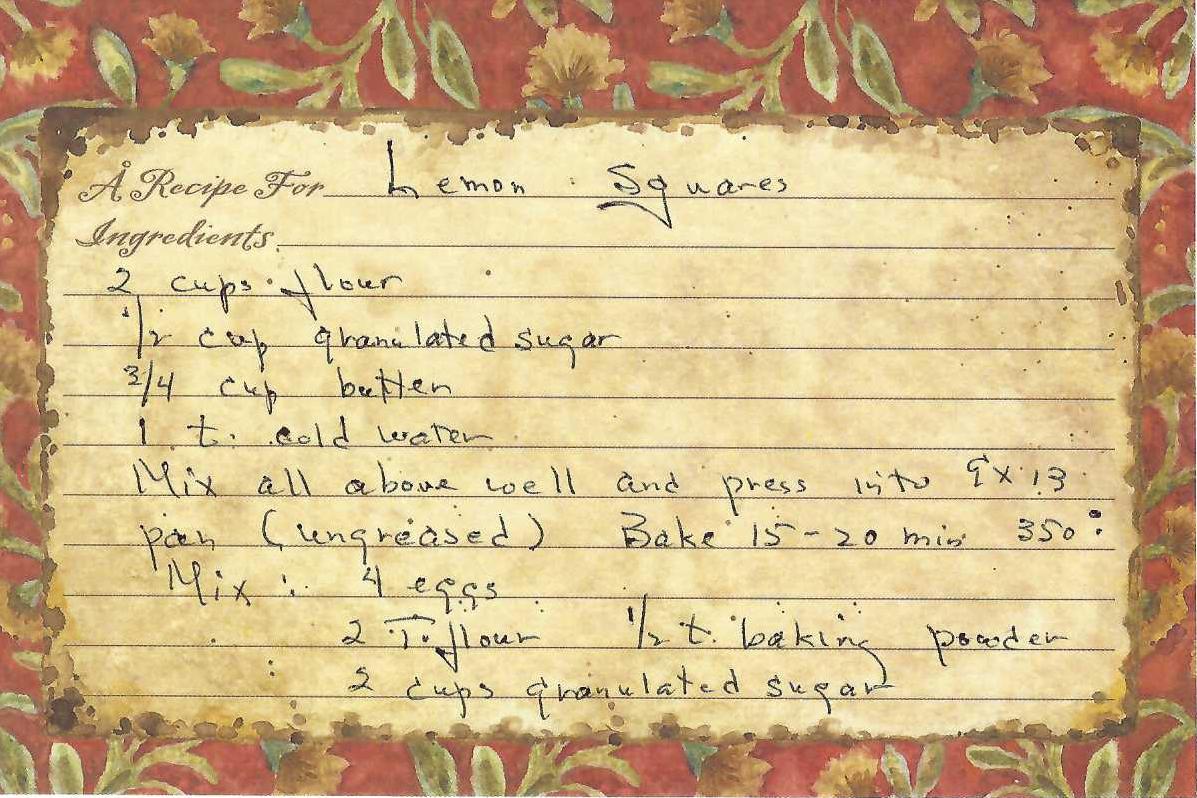 A Recipe For Lemon Squares
Ingredients
2 cups flour
1/2 cup granulated sugar
3/4 cup butter
1 t. cold water
Mix all above well and press into 9x13
pan (ungreased) Bake 15-20 min 350°
Mix: 4 eggs
2 T. flour 1/2 t. baking powder
2 cups granulated sugar